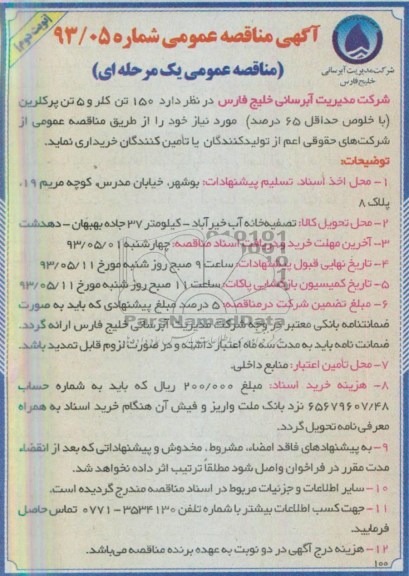 (نوبت دوم)
آگهی مناقصه عمومی شماره ۹۳/۰۵
(مناقصه عمومی یک مرحله ای)
شرکت مدیریت آبرسانی
خلیج فارس
شرکت مدیریت آبرسانی خلیج فارس در نظر دارد ۱۵۰ تن کلر و ۵ تن پرکلرین
(با خلوص حداقل ۶۵ درصد) مورد نیاز خود را از طریق مناقصه عمومی از
شرکت‌های حقوقی اعم از تولیدکنندگان یا تأمین کنندگان خریداری نماید.
توضیحات:
۱- محل اخذ أسناد، تسلیم پیشنهادات: بوشهر، خیابان مدرس، کوچه مریم ۱۹،
پلاک ۸
۲- محل تحویل کالا: تصفیه‌خانه آب خیرآباد - کیلومتر ۳۷ جاده بهبهان - دهدشت
۳- آخرین مهلت خرید و دریافت اسناد مناقصه: چهارشنبه ۹۳/۰۵/۰۱
۴- تاریخ نهایی قبول پیشنهادات: ساعت ۹ صبح روز شنبه مورخ ۹۳/۰۵/۱۱
۵- تاریخ کمیسیون بازگشایی پاکات: ساعت ۱۱ صبح روز شنبه مورخ ۹۳/۰۵/۱۱
۶- مبلغ تضمین شرکت در مناقصه: ۵ درصد مبلغ پیشنهادی که باید به صورت
ضمانتنامه بانکی معتبر در وجه شرکت مدیریت آبرسانی خلیج فارس ارائه گردد.
ضمانت نامه باید به مدت سه ماه اعتبار داشته و در صورت لزوم قابل تمدید باشد.
۷- محل تأمین اعتبار: منابع داخلی.
۸- هزینه خرید اسناد: مبلغ ۲۰۰/۰۰۰ ریال که باید به شماره حساب
۶۵۶۷۹۶۰۷/۴۸ نزد بانک ملت واریز و فیش آن هنگام خرید اسناد به همراه
معرفی نامه تحویل گردد.
۹- به پیشنهادهای فاقد امضاء، مشروط، مخدوش و پیشنهاداتی که بعد از انقضاء
مدت مقرر در فراخوان واصل شود مطلقاً ترتیب اثر داده نخواهد شد.
۱۰- سایر اطلاعات و جزئیات مربوط در اسناد مناقصه مندرج گردیده است.
۱۱- جهت کسب اطلاعات بیشتر با شماره تلفن ۳۵۳۴۱۳۰-۰۷۷۱ تماس حاصل
فرمایید.
۱۲- هزینه درج آگهی در دو نوبت به عهده برنده مناقصه می‌باشد.
۱۰۰